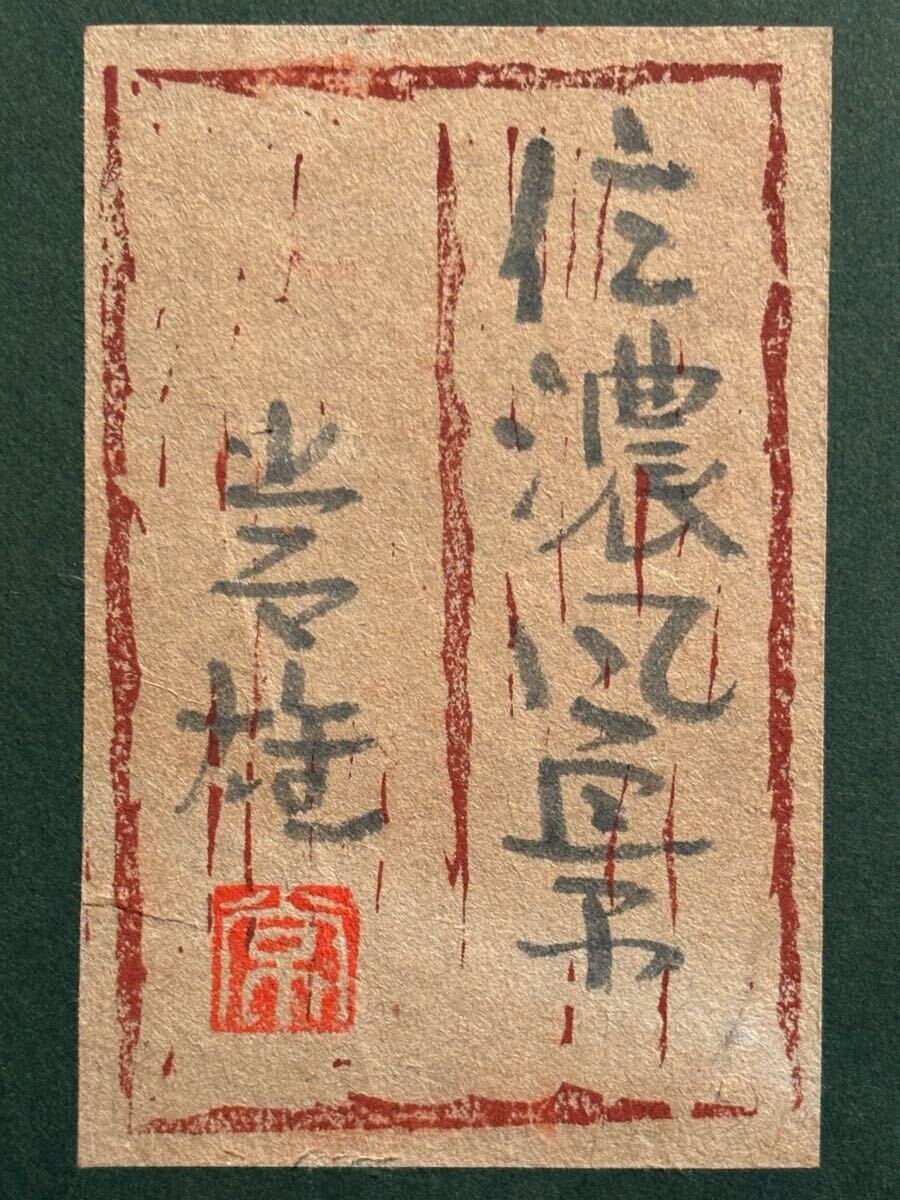 信濃風景
雄